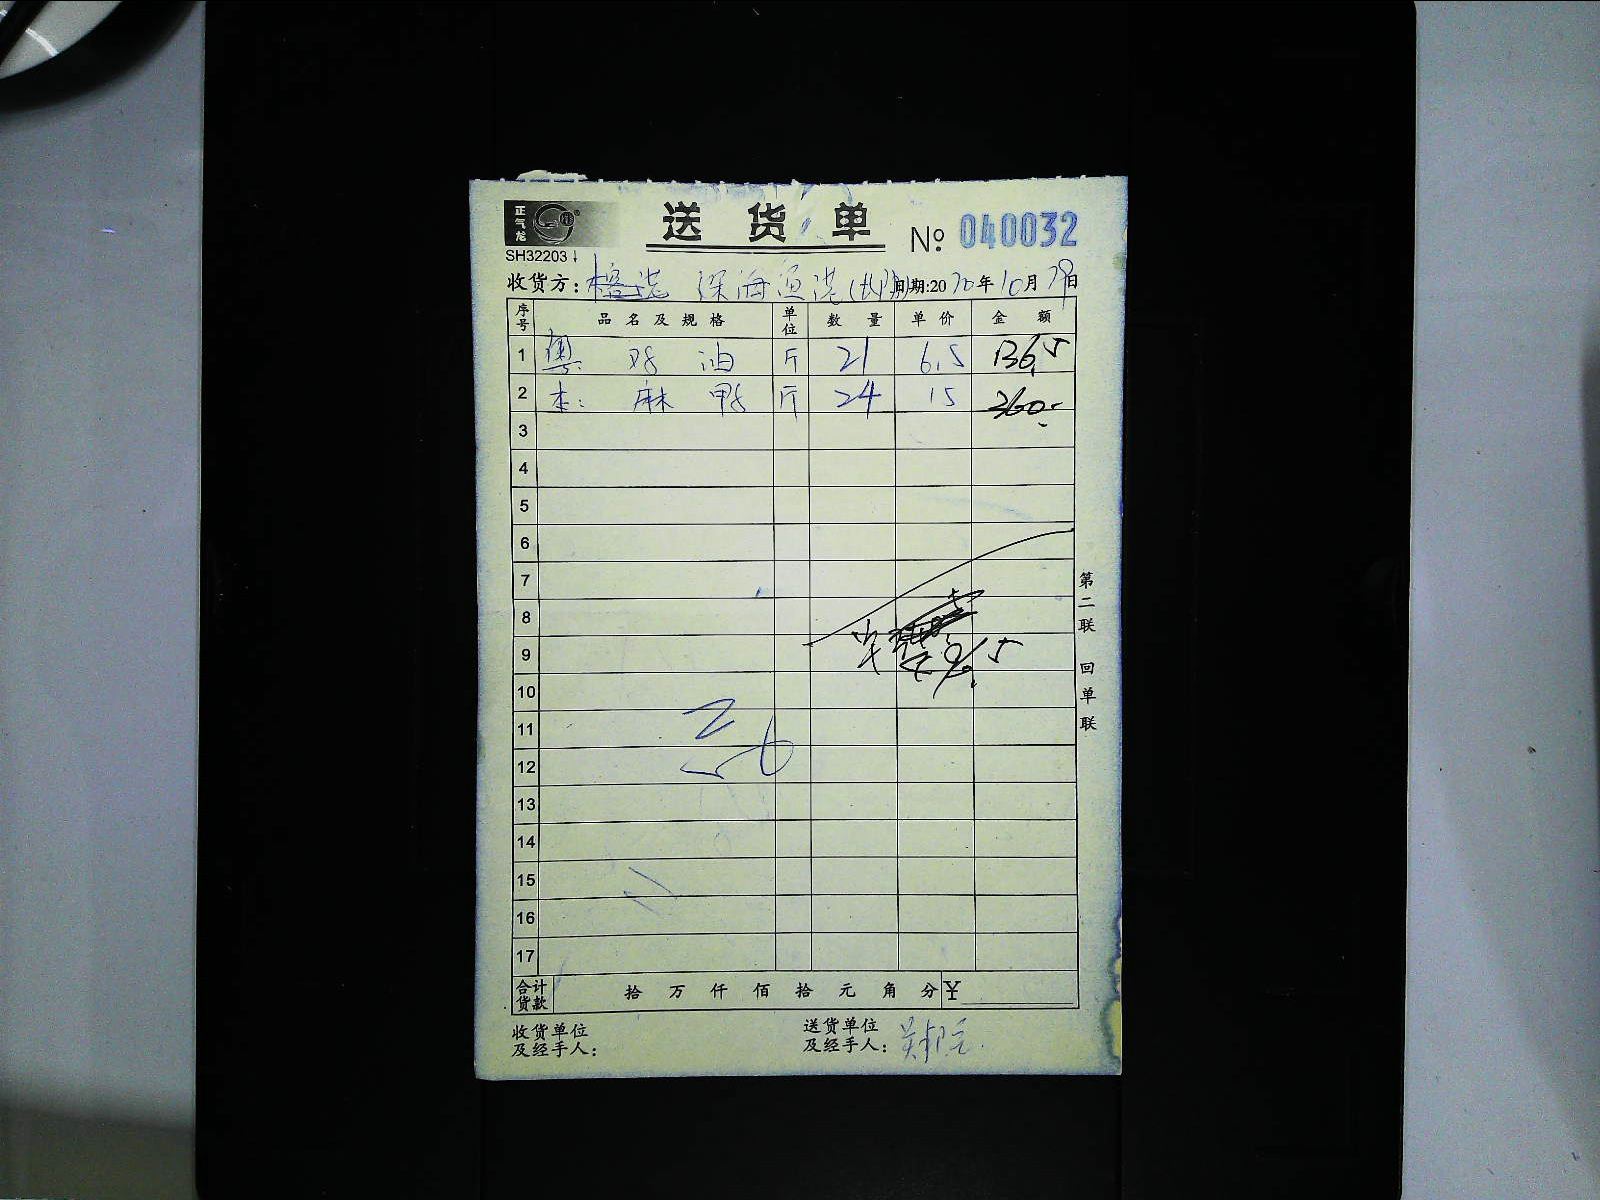 正气龙
送货单 № 040032
SH32203
收货方: 深海渔港 日期:2020年10月29日
序号 品名及规格 单位 数量 单价 金额
1 粤: 鸡油 斤 21 6.5 136.5
2 本: 麻鸭 斤 24 15 360.-
3
4
5
6
7
8
9
10
11
12
13
14
15
16
17
第二联 回单联
合计货款 拾 万 仟 佰 拾 元 角 分 ¥
收货单位及经手人: 送货单位及经手人: